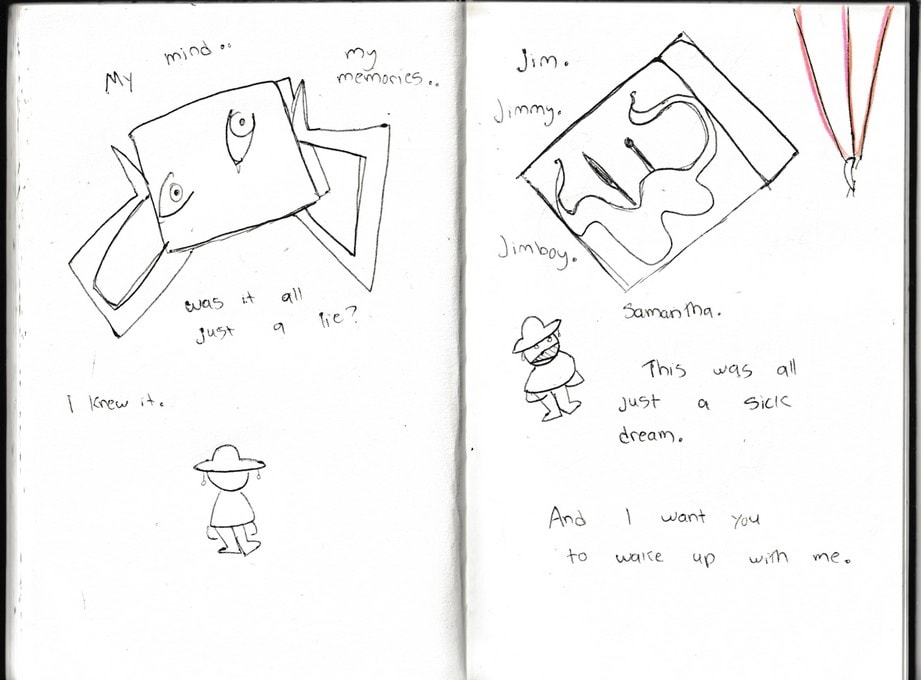 My mind..
my
memories..
was it all
just a lie?
I knew it.
Jim.
Jimmy.
Jimboy.
Samantha.
This was all
just a sick
dream.
And I want you
to wake up with me.